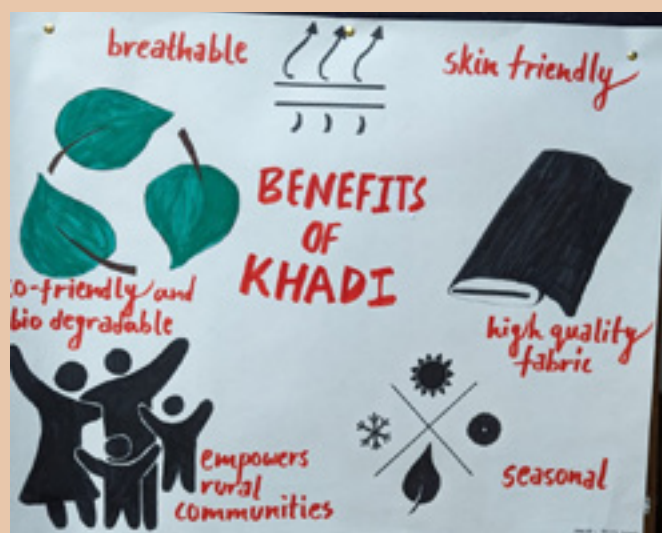 breathable
skin friendly
BENEFITS
OF
KHADI
co-friendly and
bio degradable
high quality
fabric
empowers
rural
communities
seasonal